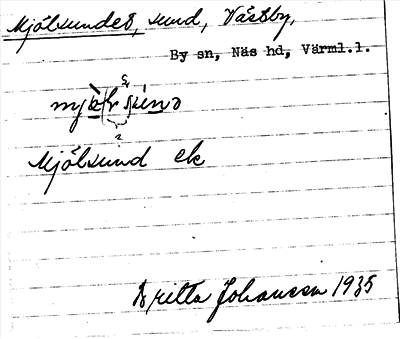 Mjölsundet, sund, Västby,
By sn, Näs hd, Värml.l.
Mjölsund ek
Britta Johansson 1935